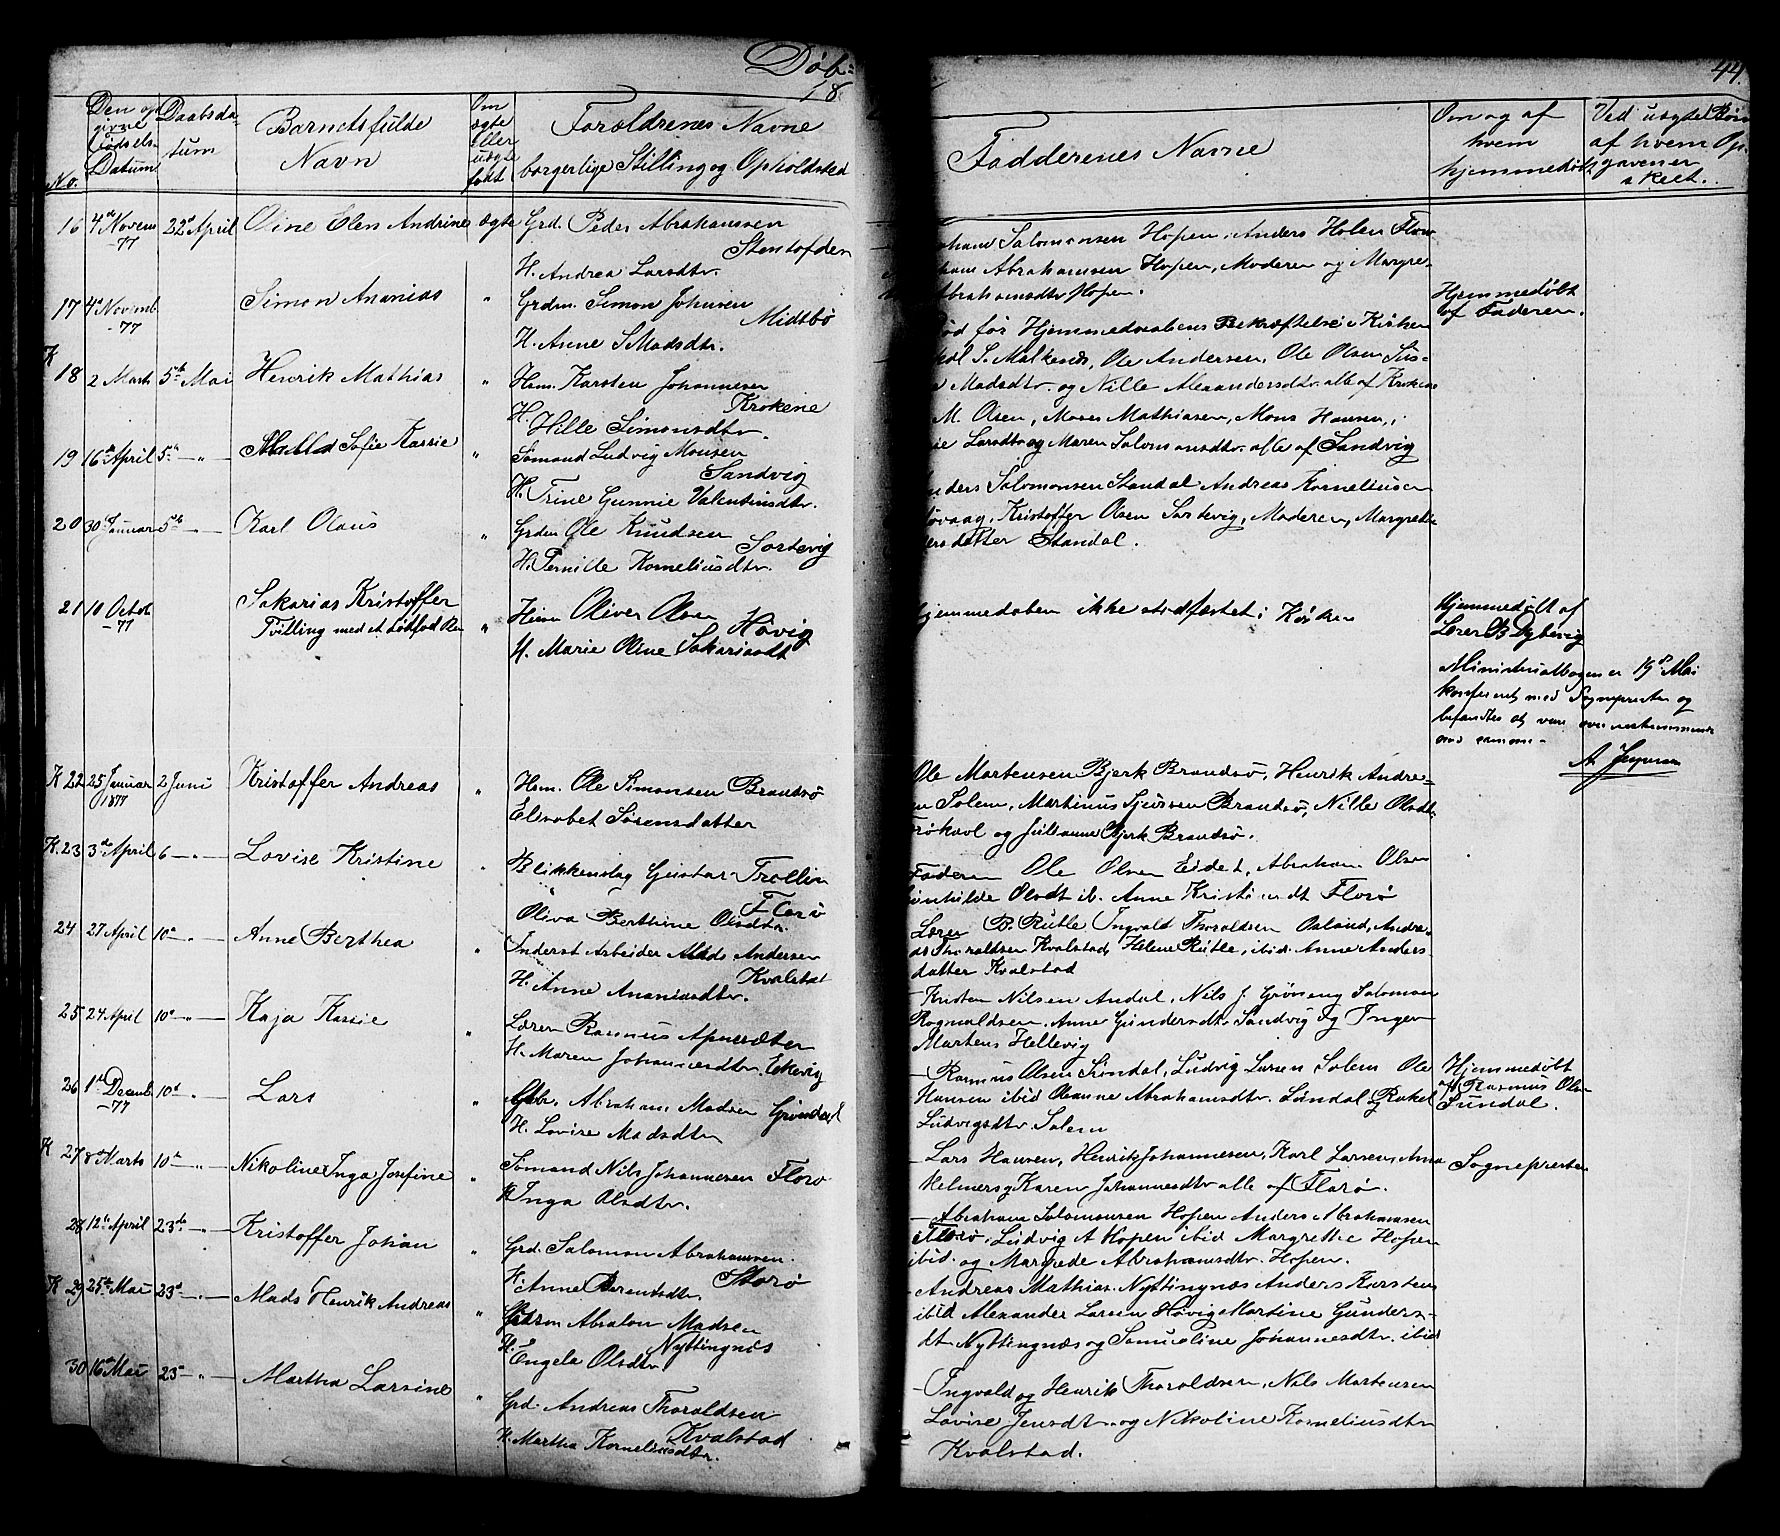 Døb=
18
44.
Den op
givne
Fødsels-
Datum
No.
Daabsda-
tum
Barnetsfulde
Navn
Om
ægte
eller
uægte
født
Forældrenes Navne
borgerlige Stilling og Opholdsted
Fadderenes Navne
Om og af
hvem
hjemmedøbt
Ved uægte Børn
af hvem Op-
gaven er
skeet.
16 4de Novem 22de April Oline Elen Andrine ægte Grd. Peder Abrahamsen
-77
Stensofden
H. Andrea Larsdtr.
Salomonsen Hopen, Anders Holen Florø
Abrahamsen Hopen, Moderen og Margre-
Abrahamsdtr Hopen.
17 4de Novemb Simon Ananias " Grdm. Simon Johnsen
-77
Midtbø
H. Anne S Madsdtr.
før Hjemmedaabens Bekræftelse i Kirken
Hjemmedøbt
af Faderen.
K
18 2 Marts 5te Mai Henrik Mathias " Hsm. Karsten Johannesen
Krokene
H. Hille Simonsdtr.
S. Malkenes, Ole Andersen, Ole Olsen Sus-
Madsdtr. og Nille Alexandersdtr. alle af Krokene
19 16de April 5te -"- Sofie Kassie " Sømand Ludvig Monsen
Sandvig
H. Trine Gunnie Valentinsdtr.
M. Olsen, Moses Mathiasen, Mons Hansen,
Larsdtr og Maren Salomonsdtr. alle af Sandvig
20 30te Januar 5te -"- Karl Olaus " Grdm Ole Knudsen
Sortevig
H. Pernille Korneliusdtr.
Salomonsen Standal Andreas Korneliusen
Kristoffer Olsen Sortevig, Moderen, Margrethe
datter Standal.
21 10 Octob Sakarias Kristoffer
-77
Tvilling med et
" Oliver Olsen
Høvig
H. Marie Oline Sakariasdt
Hjemmedøben ikke stadfæstet i Kirken
Hjemmedøbt af
Lærer B Dybevig
Ministerialbogen er 19de Mai
konfereret med Sognepresten og
befandtes at være overensstemmende
med samme.-
K 22 25 Januar 2 Juni Kristoffer Andreas " Hsm. Ole Simonsen Brandsø
Elisabet Sørensdatter
Ole Mortensen Bjerk Brandsø, Henrik Andre-
Solem, Martinus Sjursen Brandsø, Nille Olsdtr.
og Julianne Bjerk Brandsø.
K. 23 3de April 6 -"- Lovise Kristine " Blikkenslag Gustav Trollin
Florø
Oliva Berthine Olsdtr.
Faderen Ole Olsen Eidet, Abraham Olsen
Olsdt ib. Anne Kristiansdt Florø
24 27 April 10de -"- Anne Berthea " Inderst Arbeider Mads Andersen
Kvalstad
H. Anne Ananiasdtr.
Lærer B. Rutle Ingvald Thoraldsen Osland, Andre-
Thoraldsen Kvalstad, Helene Rutle, ibid. Anne Anders-
datter Kvalstad
25 24 April 10de -"- Kaja Kassie " Læren Rasmus Apneseter
H. Maren Johannesdtr. Eikevig
- Kristen Nilsen Andal, Nils J. Grøneng Salomon
Rognvaldsen, Anne Gundersdtr Sandvig og Inger
Martens Hellevig
26 1de Decemb. 10de -"- Lars " Abraham Madsen Grøndal
-77
H. Lovise Madsdtr
- Rasmus Olsen Sundal, Ludvig Larsen Solem Ole
Hansen ibid Oleanne Abrahamsdtr. Sundal og Rakel
Ludvigsdtr. Solem
Hjemmedøbt
af Rasmus Olsen
Sundal.
K
27 8de Marts 10de -"- Nikoline Inga Josefine " Sømand Nils Johannesen Florø
H. Inga Olsdtr.
- Lars Hansen, Henrik Johannesen, Karl Larsen, Anna
Helmers og Karen Johannesdtr alle af Florø.
Sognepresten
28 12te April 23de -"- Kristoffer Johan " Grd. Salomon Abrahamsen.
Storø
H. Anne Berentsdtr.
- Abraham Salomonsen Hopen Anders Abrahamsen
Florø, Ludvig A Hopen ibid Margrethe Hopen
ibid. og Margrede Abrahamsdtr. Hopen.
K 29 25te Mai 23de -"- Mads Henrik Andreas " Absalon Madsen
Nyttingnes
H. Engela Olsdtr
- Andreas Mathias. Nyttingnæs Anders Karsten
ibid Alexander Larsen Høvig Martine Gunders-
dt Nyttingnæs og Samueline Johannesdtr. ibid
30 16de Mai 23de -"- Martha Larsine " Grd. Andreas Thoraldsen
Kvalstad
H. Martha Korneliusdtr.
- Ingvald og Henrik Thoraldsen, Nils Mortensen
Lovise Jensdt. og Nikoline Korneliusdtr
Kvalstad.